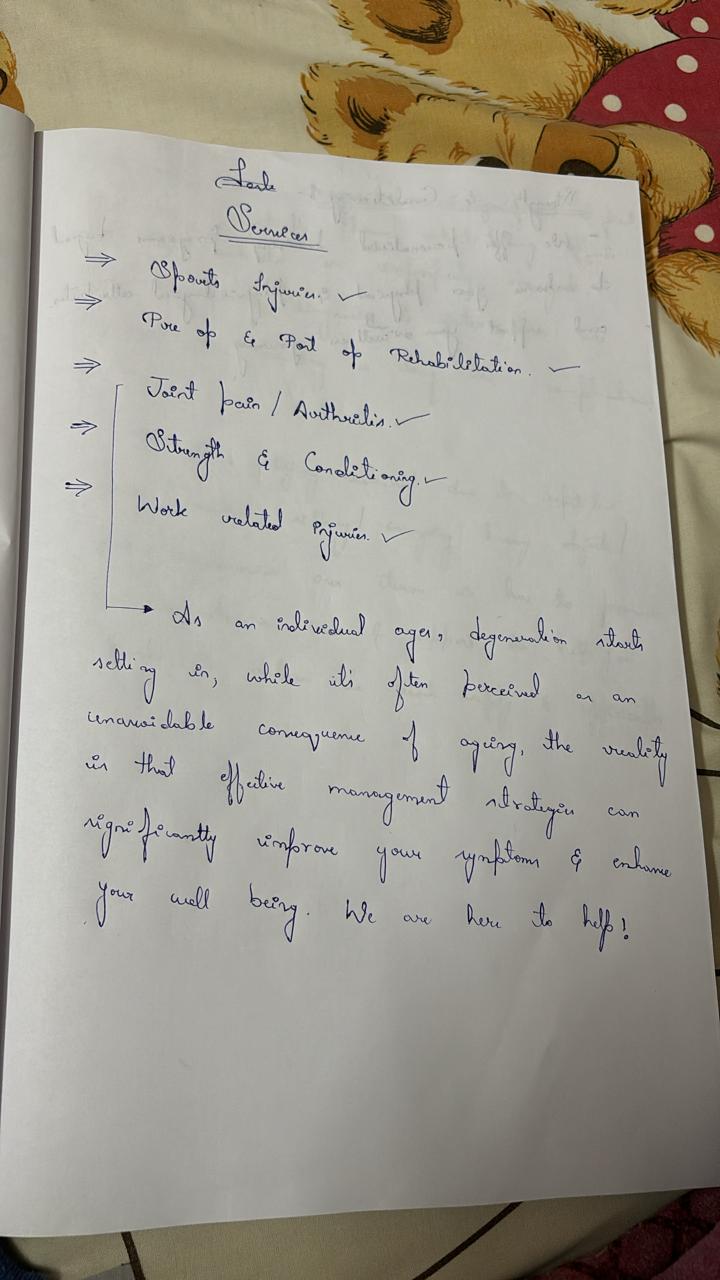 Services
⇒ Sports Injuries. ✓
⇒ Pre op & Post op Rehabilitation. ✓
⇒ Joint pain / Arthritis. ✓
⇒ Strength & Conditioning. ✓
⇒ Work related Injuries. ✓
→ As an individual ages, degeneration starts
setting in, while it's often perceived as an
unavoidable consequence of ageing, the reality
is that effective management strategies can
significantly improve your symptoms & enhance
your well being. We are here to help!